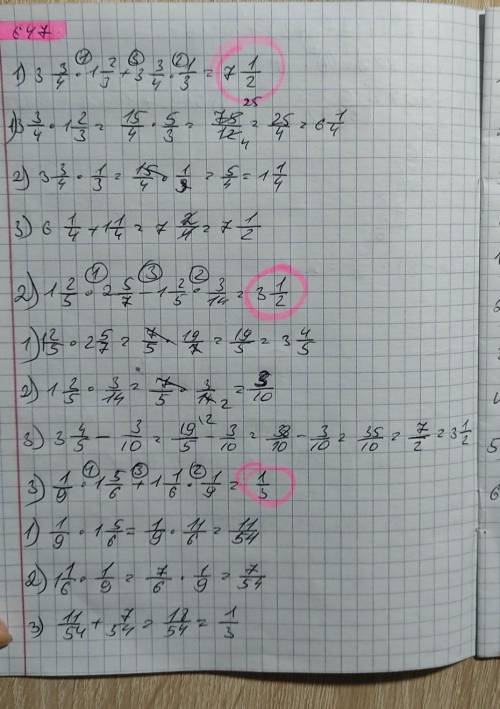 647
1) 3 3/4 · 1 2/3 + 3 3/4 · 1/3 = 7 1/2
1) 3 3/4 · 1 2/3 = 15/4 · 5/3 = 75/12 = 25/4 = 6 1/4
2) 3 3/4 · 1/3 = 15/4 · 1/3 = 5/4 = 1 1/4
3) 6 1/4 + 1 1/4 = 7 2/4 = 7 1/2
2) 1 2/5 · 2 5/7 - 1 2/5 · 3/14 = 3 1/2
1) 1 2/5 · 2 5/7 = 7/5 · 19/7 = 19/5 = 3 4/5
2) 1 2/5 · 3/14 = 7/5 · 3/14 = 3/10
3) 3 4/5 - 3/10 = 19/5 - 3/10 = 38/10 - 3/10 = 35/10 = 7/2 = 3 1/2
3) 1/9 · 1 5/6 + 1 1/6 · 1/9 = 1/3
1) 1/9 · 1 5/6 = 1/9 · 11/6 = 11/54
2) 1 1/6 · 1/9 = 7/6 · 1/9 = 7/54
3) 11/54 + 7/54 = 18/54 = 1/3